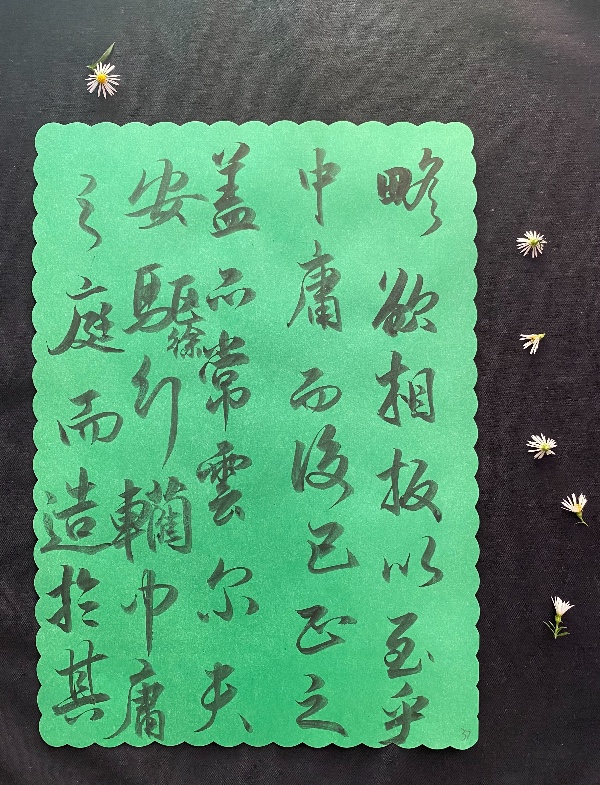 略欲相扳以至乎
中庸而後已正之
盖亦常雲尔夫
安驅徐行轥中庸
之庭而造於其
37